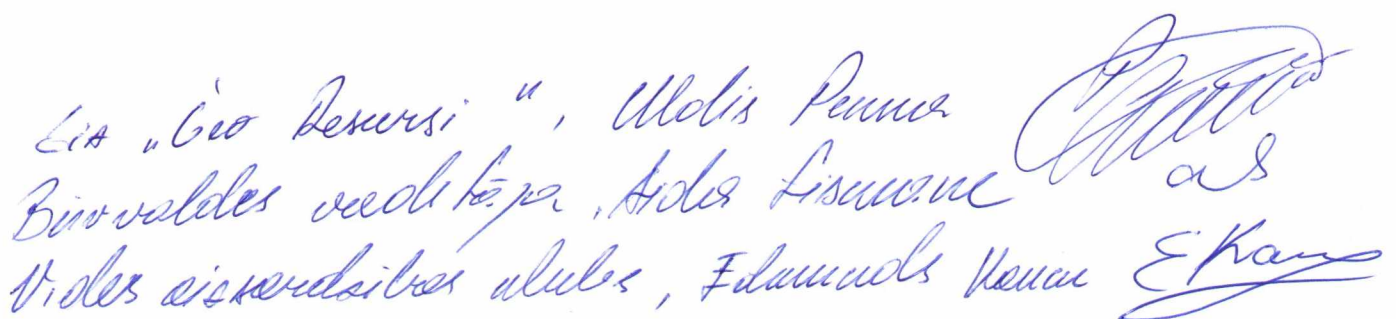 SIA "Geo Resursi", Uldis Penna
Būvvaldes vadītāja, Aida Lismane
Vides aizsardzības, Edmunds